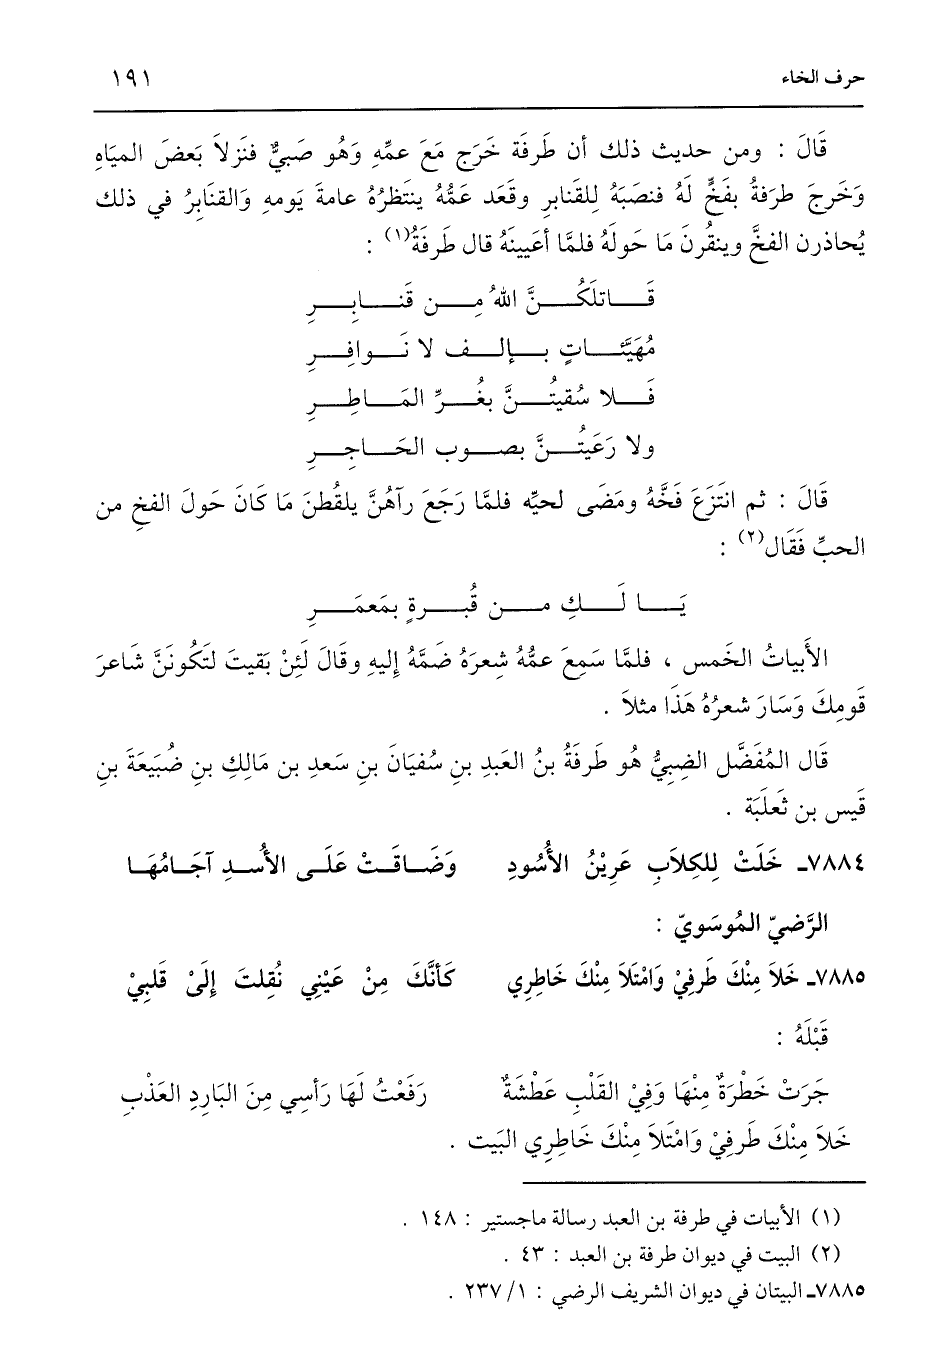 حرف الخاء ١٩١
قَالَ : ومن حديث ذلك أن طَرفَة خَرَج مَعَ عمِّهِ وَهُو صَبيٌّ فنَزلاَ بَعضَ الميَاهِ
وَخَرجَ طرَفةُ بفَخٍّ لَهُ فنصَبَهُ لِلقَنابرِ وقَعَد عَمُّهُ ينتَظرُهُ عامةَ يَومهِ وَالقنَابرُ في ذلك
يُحاذرن الفخَّ وينقُرنَ مَا حَولَهُ فلمَّا أعيَينَهُ قال طَرفَةُ(١) :
قَــاتلَكُــنَّ اللهُ مِــن قَنــابِــرِ
مُهَيَّئــاتٍ بــإلــف لا نَــوافِــرِ
فَــلا سُقيتُــنَّ بغُــرِّ المَــاطِــرِ
ولا رَعَيتُــنَّ بصــوب الحَــاجِــرِ
قَالَ : ثم انتَزَعَ فَخَّهُ ومَضَى لحيِّه فلمَّا رَجَعَ رآهُنَّ يلقُطنَ مَا كَانَ حَولَ الفخِ من
الحبِّ فَقَال(٢) :
يَــا لَــكِ مــن قُبــرةٍ بمَعمَــرِ
الأَبياتُ الخَمس ، فلمَّا سَمِعَ عمُّهُ شِعرَهُ ضَمَّهُ إليهِ وقَالَ لَئِنْ بَقيتَ لتَكونَنَّ شَاعرَ
قَومِكَ وَسَارَ شعرُهُ هَذَا مثلاَ .
قَال المُفَضَّل الضِبيُّ هُو طَرفَةُ بنُ العَبدِ بنِ سُفيَانَ بنِ سَعدِ بن مَالكِ بنِ ضُبَيعَة بنِ
قَيس بن ثَعلَبَة .
٧٨٨٤ـ خَلَتْ لِلكِلاَبِ عَرِيْنُ الأُسُودِ وَضَــاقَــتْ عَلَــى الأُســدِ آجَــامُهَــا
الرَّضيّ المُوسَويّ :
٧٨٨٥ـ خَلاَ مِنْكَ طَرفِيْ وَامْتَلاَ مِنْكَ خَاطِرِي كَأَنَّكَ مِنْ عَيْنِي نُقِلتَ إِلَىْ قَلبِيْ
قَبْلَهُ :
جَرَتْ خَطْرَةٌ مِنْهَا وَفِيْ القَلْبِ عَطْشَةٌ رَفَعْتُ لَهَا رَأسِي مِنَ البَارِدِ العَذْبِ
خَلاَ مِنْكَ طَرفِيْ وَامْتَلاَ مِنْكَ خَاطِرِي البَيت .
(١) الأبيات في طرفة بن العبد رسالة ماجستير : ١٤٨ .
(٢) البيت في ديوان طرفة بن العبد : ٤٣ .
٧٨٨٥ـ البيتان في ديوان الشريف الرضي : ١/ ٢٣٧ .